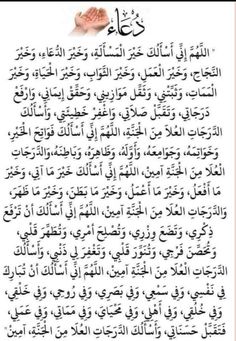 دُعَاء
" اللَّهُمَّ إِنِّي أَسْأَلُكَ خَيْرَ الْمَسْأَلَةِ، وَخَيْرَ الدُّعَاءِ، وَخَيْرَ
النَّجَاحِ، وَخَيْرَ الْعَمَلِ، وَخَيْرَ الثَّوَابِ، وَخَيْرَ الْحَيَاةِ، وَخَيْرَ
الْمَمَاتِ، وَثَبِّتْنِي، وَثَقِّلْ مَوَازِينِي، وَحَقِّقْ إِيمَانِي، وَارْفَعْ
دَرَجَاتِي، وَتَقَبَّلْ صَلَاتِي، وَاغْفِرْ خَطِيئَتِي، وَأَسْأَلُكَ
الدَّرَجَاتِ الْعُلَا مِنَ الْجَنَّةِ، اللَّهُمَّ إِنِّي أَسْأَلُكَ فَوَاتِحَ الْخَيْرِ،
وَخَوَاتِمَهُ، وَجَوَامِعَهُ، وَأَوَّلَهُ، وَظَاهِرَهُ، وَبَاطِنَهُ، وَالدَّرَجَاتِ
الْعُلَا مِنَ الْجَنَّةِ آمِينَ، اللَّهُمَّ إِنِّي أَسْأَلُكَ خَيْرَ مَا آتِي، وَخَيْرَ
مَا أَفْعَلُ، وَخَيْرَ مَا أَعْمَلُ، وَخَيْرَ مَا بَطَنَ، وَخَيْرَ مَا ظَهَرَ،
وَالدَّرَجَاتِ الْعُلَا مِنَ الْجَنَّةِ آمِينَ، اللَّهُمَّ إِنِّي أَسْأَلُكَ أَنْ تَرْفَعَ
ذِكْرِي، وَتَضَعَ وِزْرِي، وَتُصْلِحَ أَمْرِي، وَتُطَهِّرَ قَلْبِي،
وَتُحَصِّنَ فَرْجِي، وَتُنَوِّرَ قَلْبِي، وَتَغْفِرَ لِي ذَنْبِي، وَأَسْأَلُكَ
الدَّرَجَاتِ الْعُلَا مِنَ الْجَنَّةِ آمِينَ، اللَّهُمَّ إِنِّي أَسْأَلُكَ أَنْ تُبَارِكَ
فِي نَفْسِي، وَفِي سَمْعِي، وَفِي بَصَرِي، وَفِي رُوحِي، وَفِي خَلْقِي،
وَفِي خُلُقِي، وَفِي أَهْلِي، وَفِي مَحْيَايَ، وَفِي مَمَاتِي، وَفِي عَمَلِي،
فَتَقَبَّلْ حَسَنَاتِي، وَأَسْأَلُكَ الدَّرَجَاتِ الْعُلَا مِنَ الْجَنَّةِ، آمِينَ "